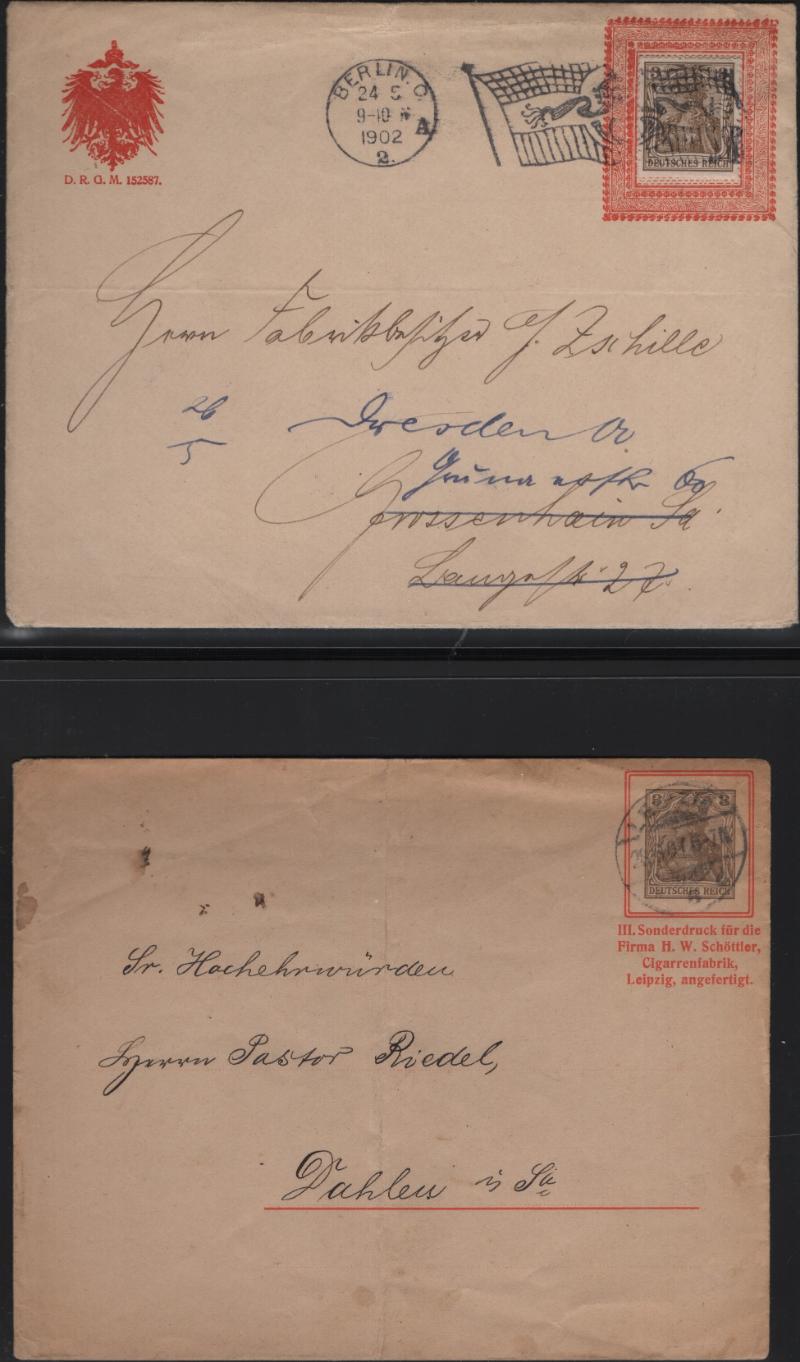 D. R. G. M. 152587.
BERLIN. C.
24 5
9-10 N
1902
2.
A
3 3
DEUTSCHES REICH
Herrn Fabrikbesitzer J. Zschille
26
5
Dresden A
Grunaerstr
Grossenhain Sa.
Langestr. 27.
3 3
DEUTSCHES REICH
III. Sonderdruck für die
Firma H. W. Schöttler,
Cigarrenfabrik,
Leipzig, angefertigt.
Sr. Hochehrwürden
Herrn Pastor Riedel,
Dahlen i. Sa.